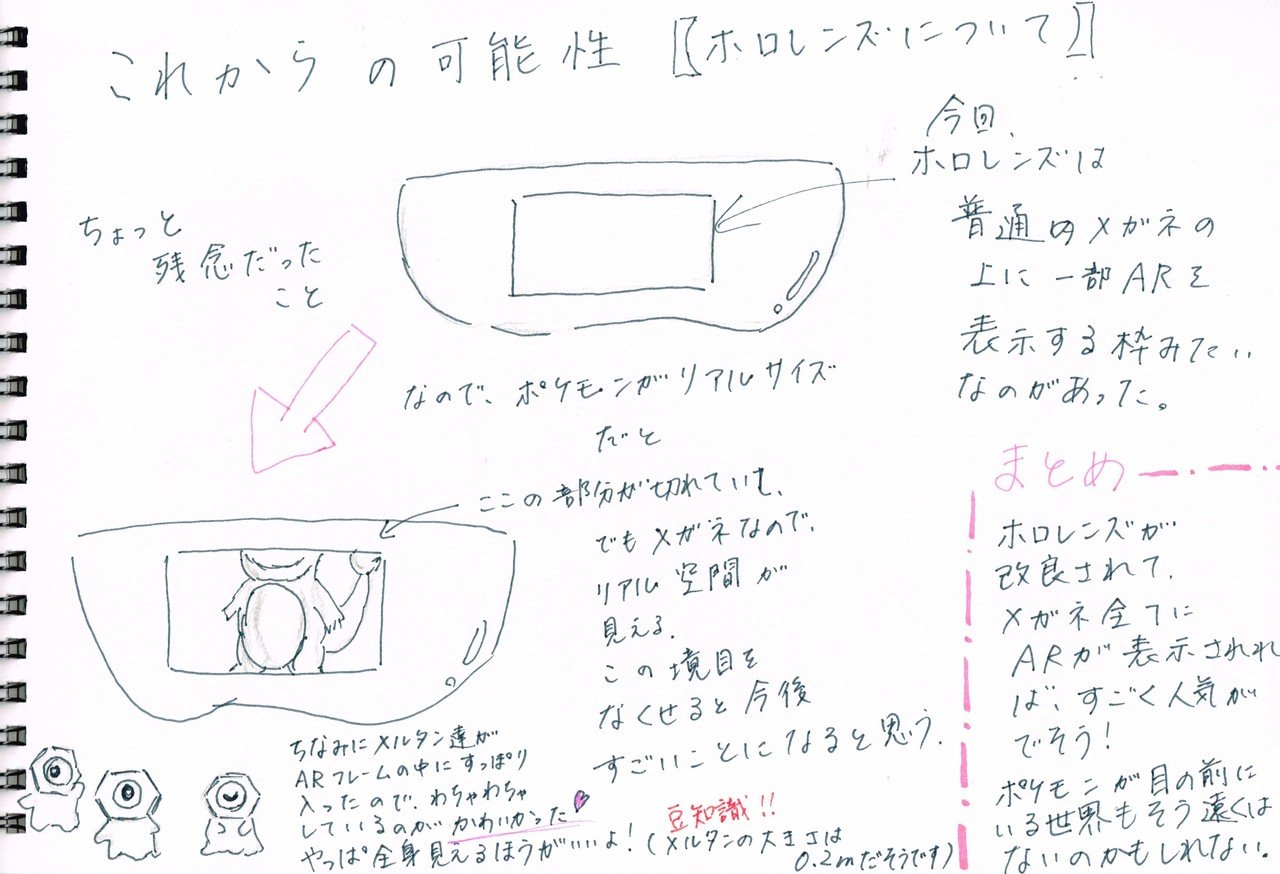 これからの可能性〖ホロレンズについて〗
今回、
ホロレンズは
普通のメガネの
上に一部ARを
表示する枠みたい
なのがあった。
ちょっと
残念だった
こと
なので、ポケモンがリアルサイズ
だと
ここの部分が切れていて、
でもメガネなので、
リアル空間が
見える。
この境目を
なくせると今後
すごいことになると思う。
ちなみにメルタン達が
ARフレームの中にすっぽり
入ったので、わちゃわちゃ
しているのがかわいかった
やっぱ全身見えるほうがいいよ!
豆知識!!
(メルタンの大きさは
0.2mだそうです)
まとめ
ホロレンズが
改良されて、
メガネ全てに
ARが表示されれ
ば、すごく人気が
でそう!
ポケモンが目の前に
いる世界もそう遠くは
ないのかもしれない。